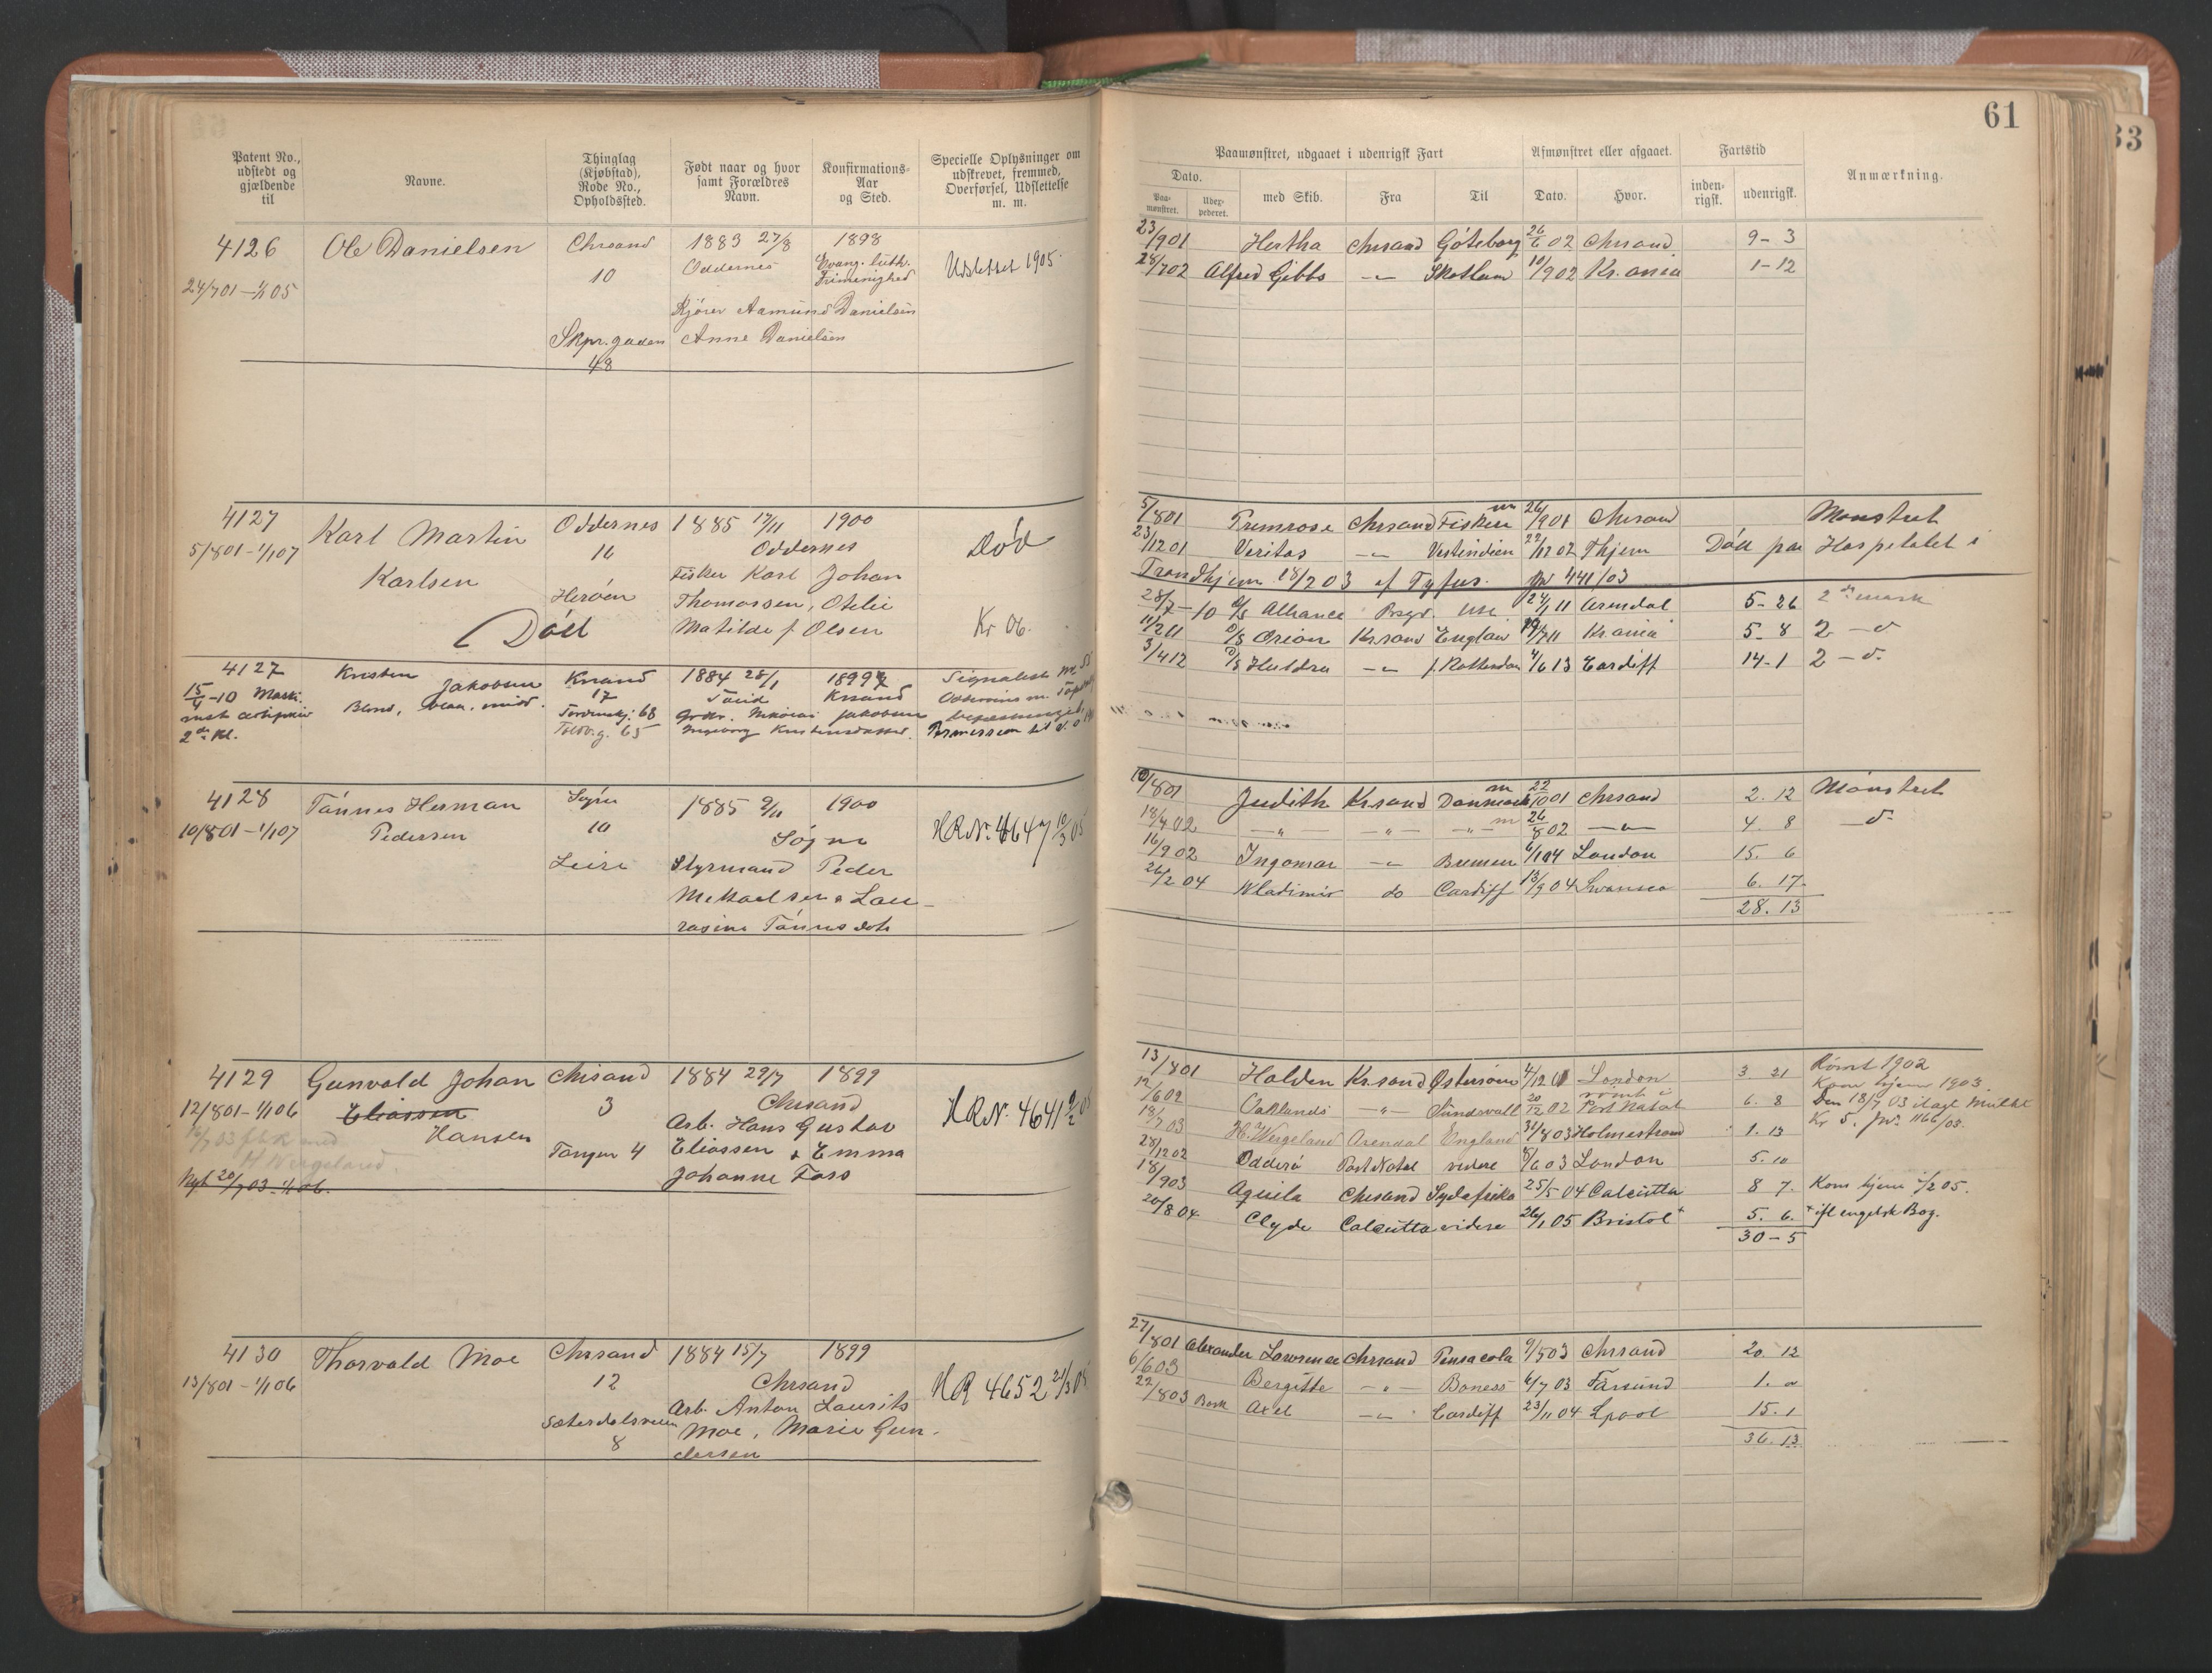 61
Patent No., udstedt og gjældende til
Navne.
Thinglag (Kjøbstad), Rode No., Opholdssted.
Født naar og hvor samt Forældres Navn.
Konfirmations-Aar og Sted.
Specielle Oplysninger om udskrevet, fremmed, Overførsel, Udslettelse m. m.
Paamønstret, udgaaet i udenrigsk Fart
Afmønstret eller afgaaet.
Fartstid
Anmærkning.
Dato.
Paa-mønstret.
Udex-pederet.
med Skib.
Fra
Til
Dato.
Hvor.
inden-rigsk.
udenrigsk.
4126 Ole Danielsen Chrsand 1883 27/8 1898
24/701–1/1 05 10 Oddernes Evang. luth. Frimenighed Udslettet 1905.
Kjører Aamund Danielsen
Skpr. gaden Anne Danielsen
48
23/901 Hertha Chrsand Göteborg 26/6 02 Chrsand 9–3
28/702 Alfred Gibbs –"– Skotland 10/902 Kr.ania 1–12
4127 Karl Martin Oddernes 1885 17/11 1900
5/801–1/107 Karlsen 16 Oddernes Død
Fisker Karl Johan
Herøen Thomassen, Otelie
Død Matilde f. Olsen Kr 06.
5/801 Primrose Chrsand Fiskeri 26/901 Chrsand Mønstret
23/1201 Veritas –"– Vestindien 22/12 02 Thjem Død paa Hospitalet i
Trondhjem 18/2 03 af Tyfus. 441/03
28/7–10 D/S Alliance 24/1 11 Arendal 5–26 2den mask
11/211 D/S Orion Kr.sand England /711 Kr.ania 5–8 2 –d
3/412 D/S Huldra –"– f. Rotterdam 4/613 Cardiff 14–1 2 –d.
4127 Kristen Jakobsen Krsand 1884 28/1 1899
15/4–10 Maski- Blond, blaa, 17 Krsand
2den Kl. 68 Nikolai Jakobsen
65 Ingeborg
4128 Tønnes Herman Søgne 1885 9/11 1900
10/801–1/107 Pedersen 10 Søgne HRNr. 4647 10/3 05
Leire Styrmand Peder
Mikkaelsen & Lau-
rasine Tønnesdotr
10/801 Judith Kr.sand Danmark 22/1001 Chrsand 2.12 Mønstret
18/402 –"– –"– –"– 26/802 –"– 4.8 –d–
16/902 Ingomar –"– Bremen 6/104 London 15.6
26/2 04 Wladimir do Cardiff 13/904 Swansea 6.17
28.13
4129 Gunvald Johan Chrsand 1884 29/7 1899
12/801–1/106 Eliassen 3 Chrsand HRNr. 4641 9/2 05
Hansen Arb. Hans Gustav
Tangen 4 Eliassen & Emma
H Wergeland. Johanne Foss
Nyt 20/703–1/106.
13/801 Halden Kr.sand Østersøen 4/12 01 London 3.21 Rømt 1902
12/602 Oaklands –"– Sundsvall 20/12 02 rømt i Port Natal 6.8 Kom hjem 1903.
18/703 H. Wergeland Arendal England 31/803 Holmestrand 1.13 Den 18/7 03 ilagt Mulkt
28/1202 Odderø Port Natal videre 8/603 London 5.10 Kr 5. Jnr. 1166/03.
18/903 Aquila Chrsand Sydafrika 25/5 04 Calcutta 8 7. Kom hjem 1/205.
20/804 Clyde Calcutta videre 26/1 05 Bristol+ 5.6. + ifl engelsk Bog.
30–5
4130 Thorvald Moe Chrsand 1884 15/7 1899
13/801–1/106 12 Chrsand HR 4652 21/3 05
Arb. Anton Laurits
Sæterdalsveien Moe, Marie Gun-
8 dersen
27/801 Alexander Lawrence Chrsand Pensacola 9/503 Chrsand 20.12
6/603 Bergitte –"– Boness 6/703 Farsund 1."
22/803 Bark Axel –"– Cardiff 23/1104 Lpool 15.1
36.13